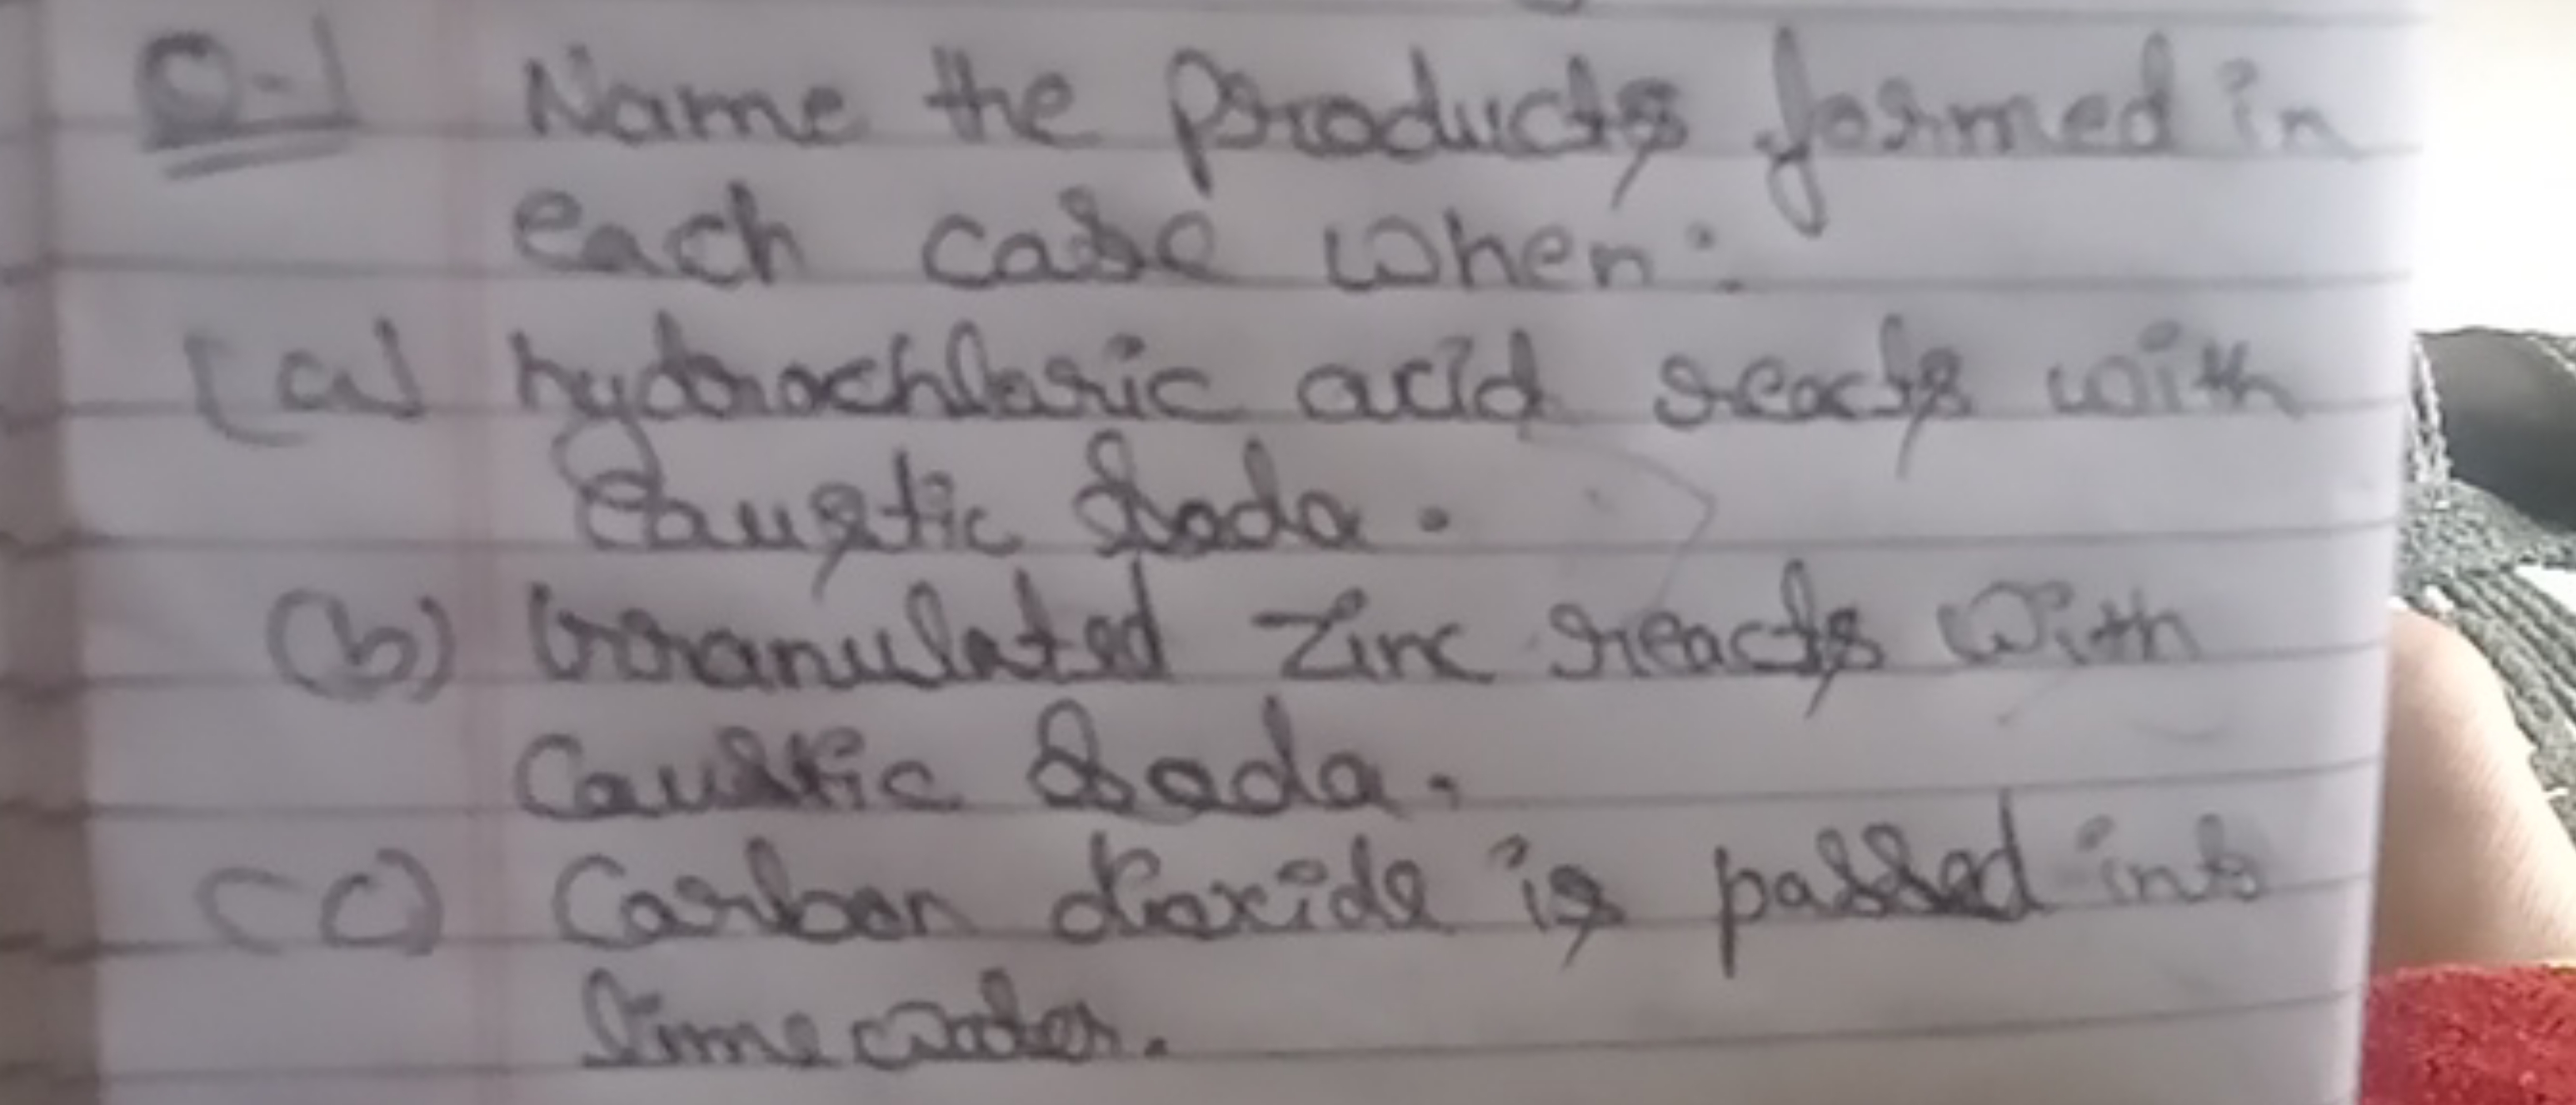 Q-1 Name the products formed in
each case when:
(a) hydrochloric acid reacts with
Caustic Soda.
(b) Granulated Zinc reacts with
Caustic Soda.
(c) Carbon dioxide is passed into
lime water.